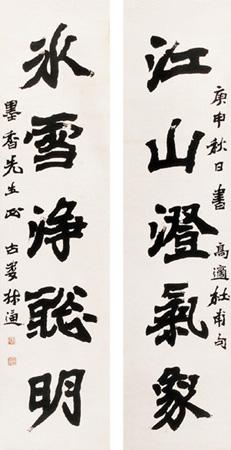 江山澄氣象
庚申秋日書 高適杜甫句
氷雪淨聰明
墨香先生正 古